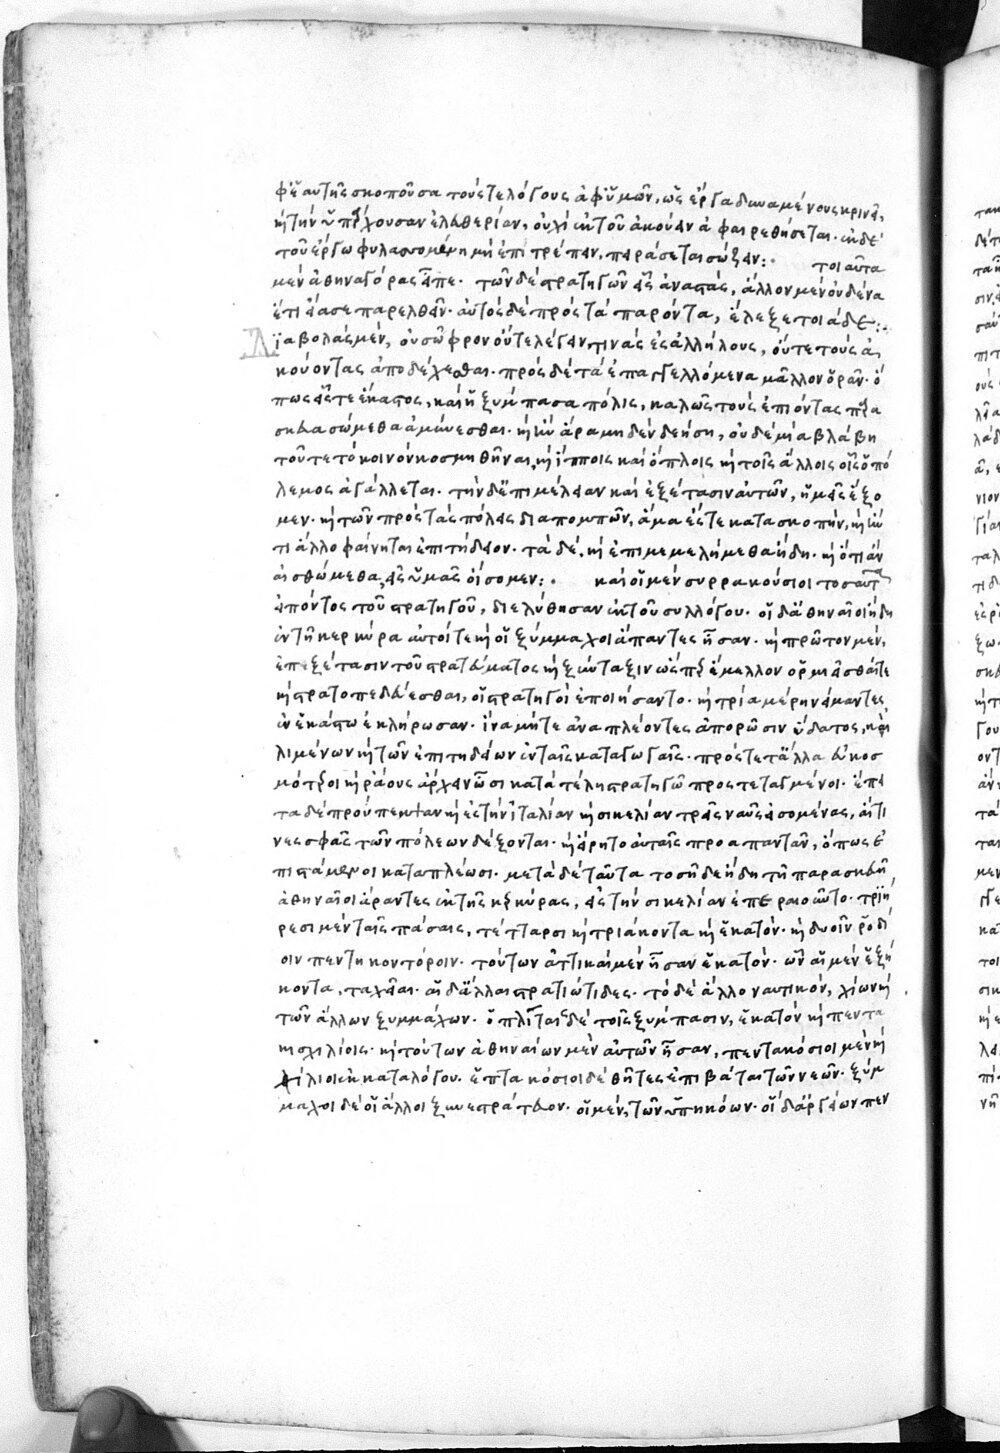 φ' ἑαυτῆς σκοποῦσα τούς τε λόγους ἀφ' ὑμῶν, ὡς ἔργα δυναμένους κρινεῖ,
καὶ τὴν ὑπάρχουσαν ἐλευθερίαν, οὐχὶ ἐκ τοῦ ἀκούειν ἀφαιρεθήσεται. ἐκ δὲ
τοῦ ἔργω φυλασσομένη μὴ ἐπιτρέπειν, πειράσεται σώζειν: τοιαῦτα
μὲν ἀθηναγόρας εἶπε. τῶν δὲ στρατηγῶν εἷς ἀναστὰς, ἄλλον μὲν οὐδένα
ἔτι εἴασε παρελθεῖν. αὐτὸς δὲ πρὸς τὰ παρόντα, ἔλεξε τοιάδε:
Διαβολὰς μὲν, οὐ σῶφρον οὔτε λέγειν τινὰς ἐς ἀλλήλους, οὔτε τοὺς ἀ
κούοντας ἀποδέχεσθαι. πρὸς δὲ τὰ ἐπαγγελλόμενα μᾶλλον ὁρᾶν. ὅ
πως εἷς τε ἕκαστος, καὶ ἡ ξύμπασα πόλις, καλῶς τοὺς ἐπιόντας παρα
σκευασώμεθα ἀμύνεσθαι. καὶ ἢν ἄρα μηδὲν δεήση, οὐδεμία βλάβη
τοῦ τε τὸ κοινὸν κοσμηθῆναι, καὶ ἵπποις καὶ ὅπλοις καὶ τοῖς ἄλλοις οἷς ὁ πό
λεμος ἀγάλλεται. τὴν δ' ἐπιμέλειαν καὶ ἐξέτασιν αὐτῶν, ἡμεῖς ἕξο
μεν. καὶ τῶν πρὸς τὰς πόλεις διαπομπῶν, ἅμα ἐς τε κατασκοπὴν, καὶ ἤν
τι ἄλλο φαίνηται ἐπιτήδειον. τὰ δὲ, καὶ ἐπιμεμελήμεθα ἤδη. καὶ ὅτι ἂν
αἰσθώμεθα, εἰς ὑμᾶς οἴσομεν: καὶ οἱ μὲν συρρακούσιοι τοσαῦτα
εἰπόντος τοῦ στρατηγοῦ, διελύθησαν ἐκ τοῦ συλλόγου. οἱ δ' ἀθηναῖοι ἤδη
ἐν τῆ κερκύρα αὐτοί τε καὶ οἱ ξύμμαχοι ἅπαντες ἦσαν. καὶ πρῶτον μὲν,
ἐπεξέτασιν τοῦ στρατεύματος καὶ ξύνταξιν ὥσπερ ἔμελλον ὁρμιεῖσθαί τε
καὶ στρατοπεδεύεσθαι, οἱ στρατηγοὶ ἐποιήσαντο. καὶ τρία μέρη νείμαντες
ἓν ἑκάστω ἐκλήρωσαν. ἵνα μήτε ἅμα πλέοντες ἀπορῶσιν ὕδατος, καὶ
λιμένων καὶ τῶν ἐπιτηδείων ἐν ταῖς καταγωγαῖς. πρός τε τἆλλα εὐκοσ
μότεροι καὶ ῥάους ἄρχειν ὦσι κατὰ τέλη στρατηγῶ προστεταγμένοι. ἔπει
τα δὲ προὔπεμψαν καὶ ἐς τὴν ἰταλίαν καὶ σικελίαν τρεῖς ναῦς εἰσομένας, αἵτι
νες σφᾶς τῶν πόλεων δέξονται. καὶ εἴρητο αὐταῖς προαπαντᾶν, ὅπως ἐ
πιστάμενοι καταπλέωσι. μετὰ δὲ ταῦτα τοσῆδε ἤδη τῆ παρασκευῆ
ἀθηναῖοι ἄραντες ἐκ τῆς κερκύρας, εἰς τὴν σικελίαν ἐπεραιοῦντο. τριή
ρεσι μὲν ταῖς πάσαις, τέτταρσι καὶ τριάκοντα καὶ ἑκατόν. καὶ δυοῖν ῥοδί
οιν πεντηκοντόροιν. τούτων ἀττικαὶ μὲν ἦσαν ἑκατόν. ὧν αἱ μὲν ἑξή
κοντα, ταχεῖαι. αἱ δ' ἄλλαι στρατιώτιδες. τὸ δὲ ἄλλο ναυτικὸν, χίων καὶ
τῶν ἄλλων ξυμμάχων. ὁπλῖται δὲ τοῖς ξύμπασιν, ἑκατὸν καὶ πεντα
κισχιλίοις. καὶ τούτων ἀθηναίων μὲν αὐτῶν ἦσαν, πεντακόσιοι μὲν καὶ
χίλιοι ἐκ καταλόγου. ἑπτακόσιοι δὲ θῆτες ἐπιβάται τῶν νεῶν. ξύμ
μαχοι δὲ οἱ ἄλλοι ξυνεστράτευον. οἱ μὲν, τῶν ὑπηκόων. οἱ δ' ἀργείων πεν